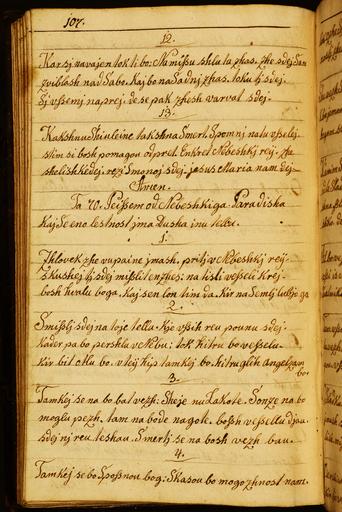 107.
12.
Kar si navajen tok ti bo: Na missu shlu ta zhas. zhe sdej San
zviblash nad Sabo. Kaj bo na Sadni zhas. toku ti sdej.
Si vssemi naprej. de se pak zhesh varvat sdej.
13.
Kakshnu Shiuleine takshna Smert. Spomni na tu vsselej
stim si bosh pomagou odpret. Enkret Nebeshki rej. zhe
sheliseh kedej rezi smano j sdej. jesus Maria nam dej
Amen.
Ta 20. Peissem od Nebeshkiga Paradisha
Kaj se eno lestnost jma Dusha inu tellu.
1.
Zhlovek zhe vupaine jmash. pritj v Nebeshki reij
skushej tj sdej misslit en zhes: na tisti vesseli krej
bosh hvalu boga. Kaj sen lon tim da. Kir na Semli lubjo ga
2.
Smissli sdej na toje tellu. Kje vssih reu pounu sdej.
Kadar pa bo pershlu v Nebu: tok hitru bo vesselu.
Kir bit Mu bo. vtej hip tamkej bo. hitru glih Angelzam
bo.
3.
Tamkej se na bo bat vezh. Sheje nu Lakote. Sonze na bo
moglu pezh. tam na bode nagote. bossh vessellu djau.
sdej ni reu teshau. Smerti se na bosh vezh bau.
4.
Tamkej se bo Spossnou bog: Skasou bo mogozhnost nam.